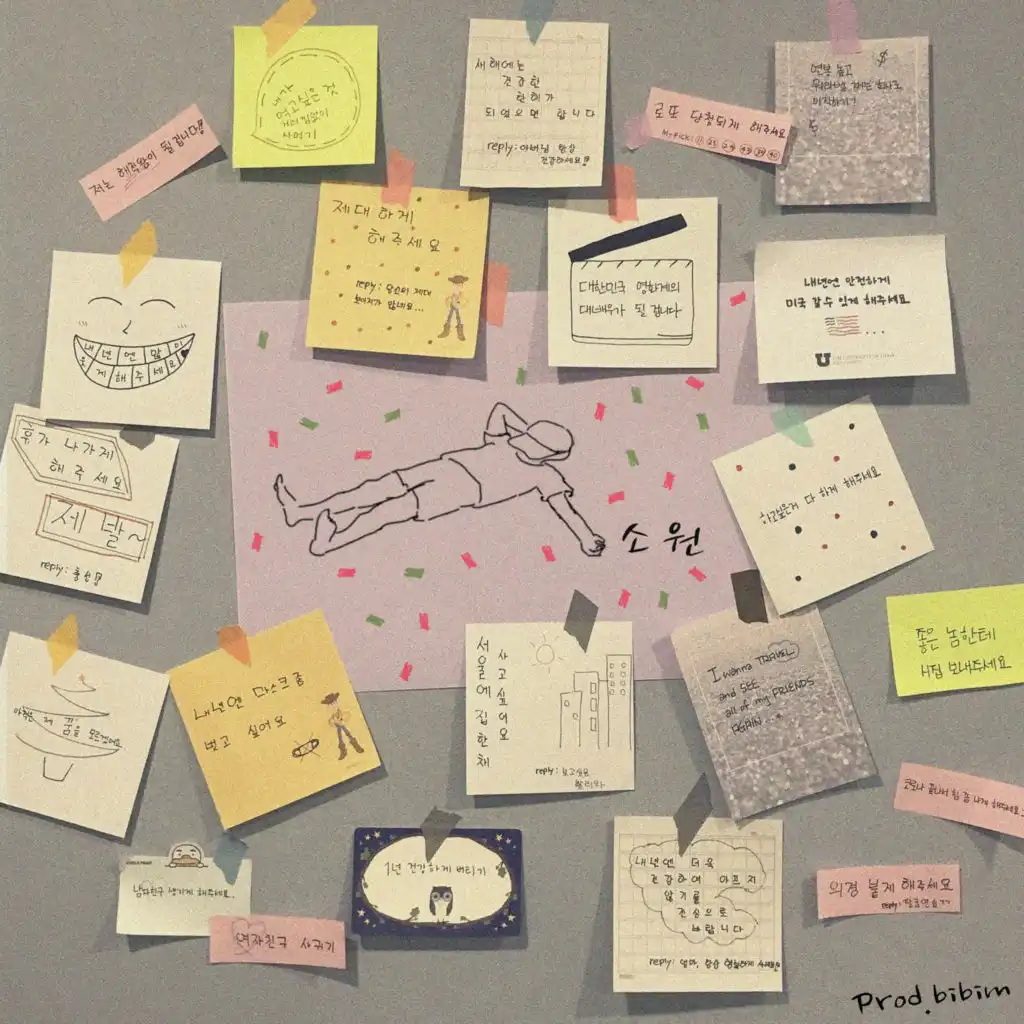 내가
먹고싶은 것
거리낌없이
사먹기
새해에는
건강한
한해가
되었으면 합니다
reply: 아버님 항상
건강하세요!
$
연봉 높고
이직하기
저는 해적왕이 될 겁니다!
로또 당첨되게 해주세요
My pick!
제대 하게
해주세요
reply: 당신이 제대
대한민국 영화계의
대배우가 될 겁니다
내년엔 안전하게
미국 갈 수 있게 해주세요
...
U
내년엔 많이
웃게해주세요
휴가 나가게
해주세요
제발~
reply: 충성!
하고싶은거 다 하게 해주세요
소원
좋은 놈한테
시집 보내주세요
아직은 제 꿈을 모르겠어요
내년엔 마스크 좀
벗고 싶어요
서울에 집 한 채
사고 싶어요
reply: 보고있나
I wanna TRAVEL
and SEE
all of my FRIENDS
AGAIN...
코로나 끝나서 힘 좀 나게 해주세요
남자친구 생기게 해주세요.
여자친구 사귀기
1년 건강하게 버티기
내년엔 더욱
건강하여 아프지
않기를
진심으로
바랍니다
reply: 엄마, 항상 행복하게 사세요
의경 붙게 해주세요
Prod.bibim